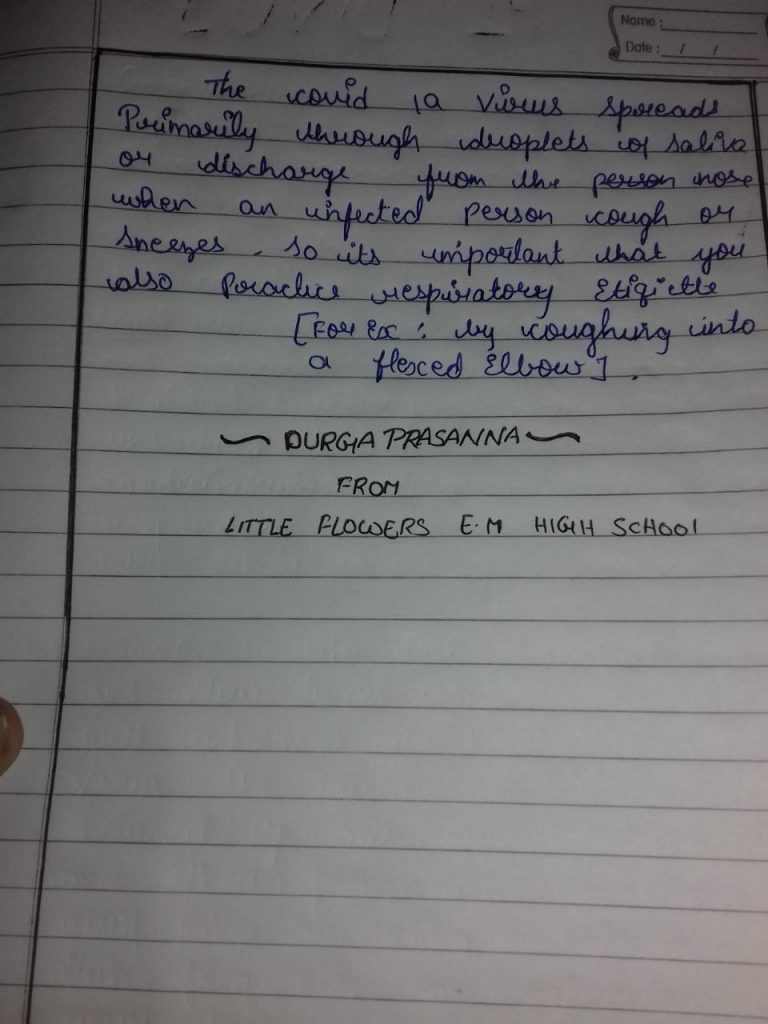 Name :
Date : / /
The covid 19 virus spreads
Primarily through droplets of saliva
or discharge from the person nose
when an infected person cough or
sneezes. so its important that you
also Practice respiratory Etiqitte
[For Ex : by coughing into
a flexed Elbow].
DURGA PRASANNA
FROM
LITTLE FLOWERS E.M HIGH SCHOOl